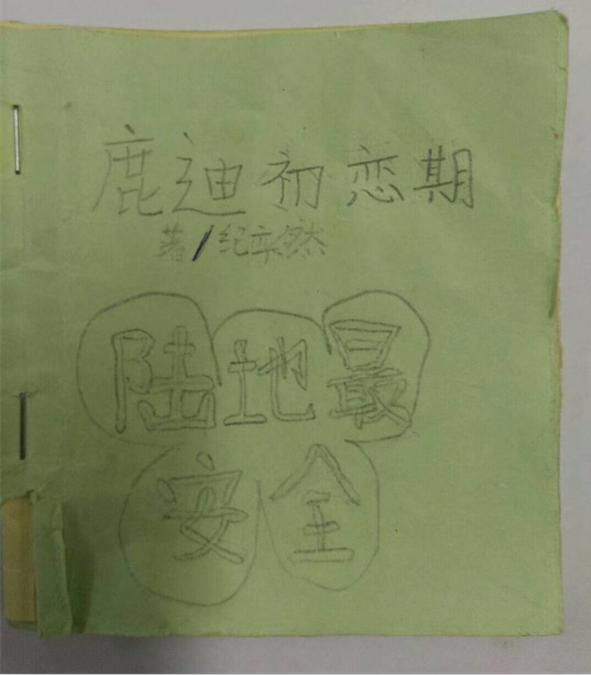 鹿迪初恋期
著/纪亦然
陆地最
安全